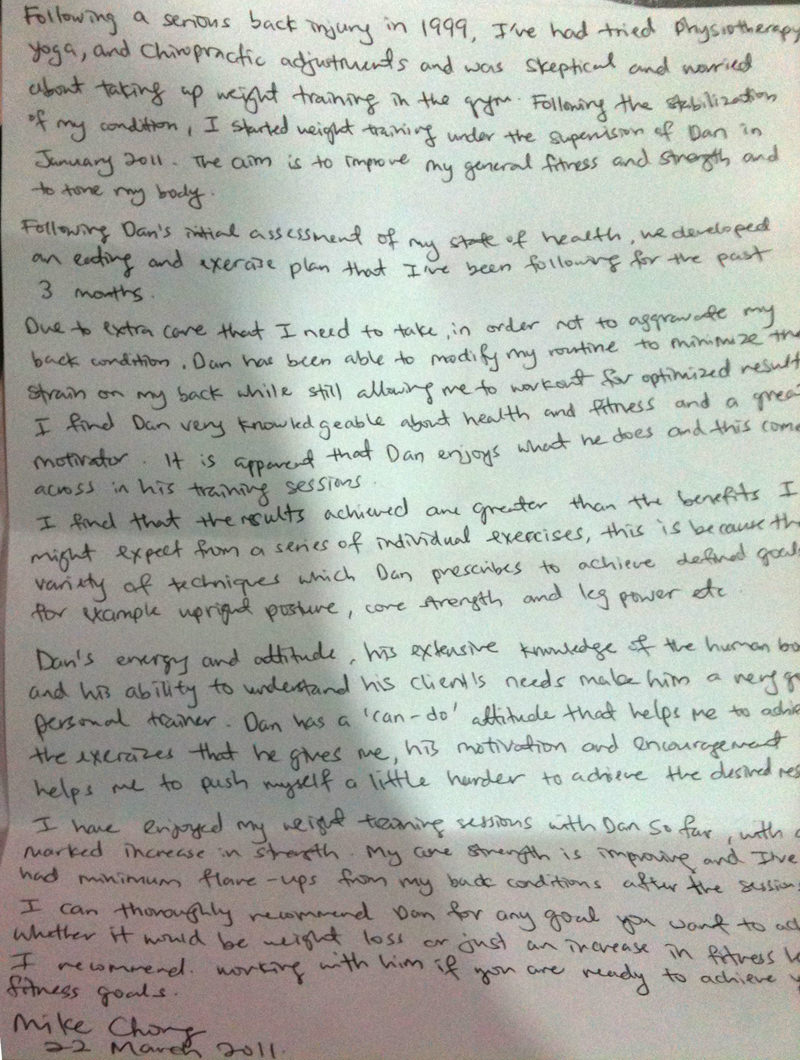 Following a serious back injury in 1999, I've had tried Physiotherapy
Yoga, and Chiropractic adjustments and was skeptical and worried
about taking up weight training in the gym. Following the stabilization
of my condition, I started weight training under the supervision of Dan in
January 2011. The aim is to improve my general fitness and strength and
to tone my body.
Following Dan's initial assessment of my state of health, we developed
an eating and exercise plan that I've been following for the past
3 months.
Due to extra care that I need to take, in order not to aggravate my
back condition, Dan has been able to modify my routine to minimize the
strain on my back while still allowing me to workout for optimized result
I find Dan very knowledgeable about health and fitness and a grea
motivator. It is apparent that Dan enjoys what he does and this come
across in his training sessions.
I find that the results achieved are greater than the benefits I
might expect from a series of individual exercises, this is because th
variety of techniques which Dan prescribes to achieve defined goals
for example upright posture, core strength and leg power etc.
Dan's energy and attitude, his extensive knowledge of the human bo
and his ability to understand his client's needs make him a very go
personal trainer. Dan has a 'can-do' attitude that helps me to achie
the exercises that he gives me, his motivation and encouragement
helps me to push myself a little harder to achieve the desired res
I have enjoyed my weight training sessions with Dan so far, with a
marked increase in strength. My core strength is improving and I've
had minimum flare-ups from my back conditions after the session
I can thoroughly recommend Dan for any goal you want to ach
whether it would be weight loss or just an increase in fitness le
I recommend working with him if you are ready to achieve y
fitness goals.
Mike Chong
22 March 2011.